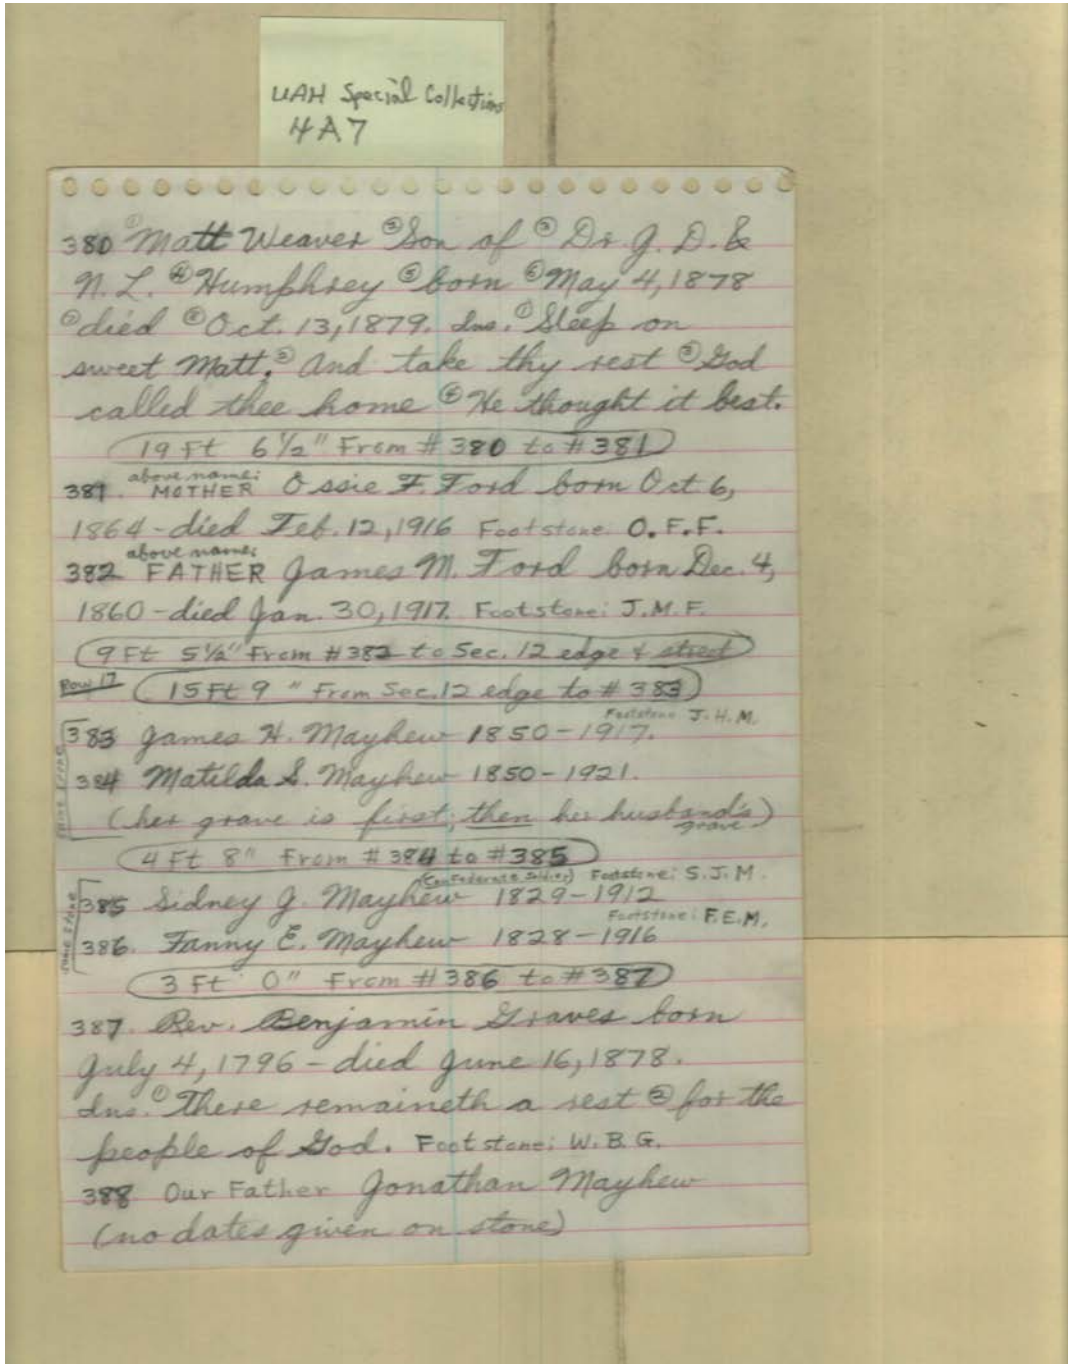 UAH Special Collections
4A7
380 ①Matt Weaver ②Son of ③Dr. J. D. &
N. L. ④Humphrey ⑤born ⑥May 4, 1878
⑦died ⑧Oct. 13, 1879. Ins. ①Sleep on
sweet Matt, ②And take thy rest ③God
called thee home ④He thought it best.
19 Ft 6 1/2" From #380 to #381
above name:
381. MOTHER Ossie F. Ford born Oct 6,
1864 - died Feb. 12, 1916 Footstone: O.F.F.
above name:
382 FATHER James M. Ford born Dec. 4,
1860 - died Jan. 30, 1917. Footstone: J.M.F.
9 Ft 5 1/2" From #382 to Sec. 12 edge & street
Row 17
15 Ft 9 " From Sec. 12 edge to #383
Footstone: J.H.M.
383 James H. Mayhew 1850 - 1917.
384 Matilda S. Mayhew 1850 - 1921.
same stone
(her grave is first; then her husband's
grave)
4 Ft 8" From #384 to #385
(Confederate Soldier) Footstone: S.J.M.
385 Sidney J. Mayhew 1829 - 1912
Footstone: F.E.M.
386. Fanny E. Mayhew 1828 - 1916
same stone
3 Ft 0" From #386 to #387
387. Rev. Benjamin Graves born
July 4, 1796 - died June 16, 1878.
Ins. ①There remaineth a rest ②for the
people of God. Footstone: W.B.G.
388 Our Father Jonathan Mayhew
(no dates given on stone)